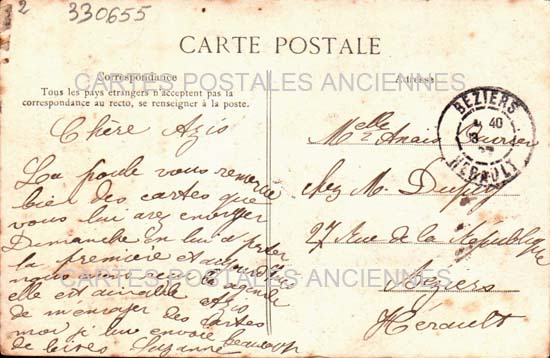 2
330655
CARTE POSTALE
Correspondance
Tous les pays étrangers n'acceptent pas la
correspondance au recto, se renseigner à la poste.
Adresse
CARTES POSTALES ANCIENNES
BEZIERS
40
HERAULT
Chère Azis
La poule vous remercie
bien des cartes que
vous lui avez envoyer
Dimanche en lui
la première et
nous
elle est aimable
de m'envoyer des cartes
moi je lui envoie beaucoup
de bises Suzanne
Melle Anais
chez M. Dupuy
27 Rue de la République
Béziers
Hérault
CARTES POSTALES ANCIENNES